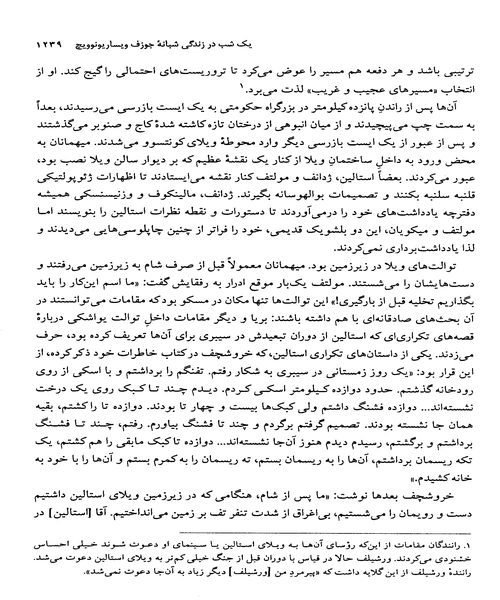 یک شب در زندگی شبانهٔ جوزف ویساریونوویچ   ۱۲۳۹
ترتیبی باشد و هر دفعه هم مسیر را عوض می‌کرد تا تروریست‌های احتمالی را گیج کند. او از
انتخاب «مسیرهای عجیب و غریب» لذت می‌برد.۱
آن‌ها پس از راندنِ پانزده کیلومتر در بزرگراه حکومتی به یک ایست بازرسی می‌رسیدند، بعداً
به سمت چپ می‌پیچیدند و از میان انبوهی از درختان تازه کاشته شدهٔ کاج و صنوبر می‌گذشتند
و پس از عبور از یک ایست بازرسی دیگر وارد محوطهٔ ویلای کونتسوو می‌شدند. میهمانان به
محض ورود به داخلِ ساختمانِ ویلا از کنار یک نقشهٔ عظیم که بر دیوار سالن ویلا نصب بود،
عبور می‌کردند. بعضاً استالین، ژدانف و مولتف کنار نقشه می‌ایستادند تا اظهارات ژئوپولتیکی
قلنبه سلنبه بکنند و تصمیمات بوالهوسانه بگیرند. ژدانف، مالینکوف و وزنیسنسکی همیشه
دفترچه یادداشت‌های خود را درمی‌آوردند تا دستورات و نقطه نظرات استالین را بنویسند اما
مولتف و میکویان، این دو بلشویک قدیمی، خود را فراتر از چنین چاپلوسی‌هایی می‌دیدند و
لذا یادداشت‌برداری نمی‌کردند.
توالت‌های ویلا در زیرزمین بود. میهمانان معمولاً قبل از صرف شام به زیرزمین می‌رفتند و
دست‌هایشان را می‌شستند. مولتف یک‌بار موقع ادرار به رفقایش گفت: «ما اسم این‌کار را باید
بگذاریم تخلیه قبل از بارگیری!» این توالت‌ها تنها مکان در مسکو بود که مقامات می‌توانستند در
آن بحث‌های صادقانه‌ای با هم داشته باشند: بریا و دیگر مقامات داخلِ توالت یواشکی دربارهٔ
قصه‌های تکراری‌ای که استالین از دوران تبعیدش در سیبری برای آن‌ها تعریف کرده بود، حرف
می‌زدند. یکی از داستان‌های تکراری استالین، که خروشچف در کتاب خاطرات خود ذکر کرده، از
این قرار بود: «یک روز زمستانی در سیبری به شکار رفتم. تفنگم را برداشتم و با اسکی از روی
رودخانه گذشتم. حدود دوازده کیلومتر اسکی کردم. دیدم چند تا کبک روی یک درخت
نشسته‌اند... دوازده فشنگ داشتم ولی کبک‌ها بیست و چهار تا بودند. دوازده تا را کشتم، بقیه
همان جا نشسته بودند. تصمیم گرفتم برگردم و چند تا فشنگ بیاورم. رفتم، چند تا فشنگ
برداشتم و برگشتم، رسیدم دیدم هنوز آن‌جا نشسته‌اند... دوازده تا کبک مابقی را هم کشتم، یک
تکه ریسمان برداشتم، آن‌ها را به ریسمان بستم، ته ریسمان را به کمرم بستم و آن‌ها را با خود به
خانه کشیدم.»
خروشچف بعدها نوشت: «ما پس از شام، هنگامی که در زیرزمین ویلای استالین داشتیم
دست و رویمان را می‌شستیم، بی‌اغراق از شدت تنفر تف بر زمین می‌انداختیم. آقا [استالین] در
۱. رانندگان مقامات از این‌که رؤسای آن‌ها به ویلای استالین یا سینمای او دعوت شوند خیلی احساس
خشنودی می‌کردند. ورشیلف حالا در قیاس با دوران قبل از جنگ خیلی کم‌تر به ویلای استالین دعوت می‌شد.
رانندهٔ ورشیلف از این گلایه داشت که «پیرمردِ من [ورشیلف] دیگر زیاد به آن‌جا دعوت نمی‌شد».